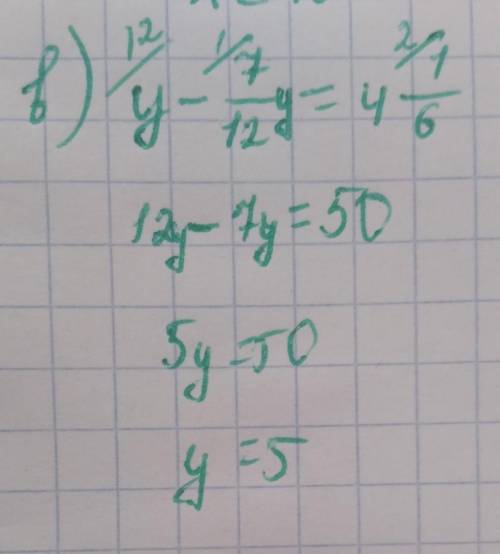 в) y - 7/12 y = 4 1/6
12y - 7y = 50
5y = 50
y = 5